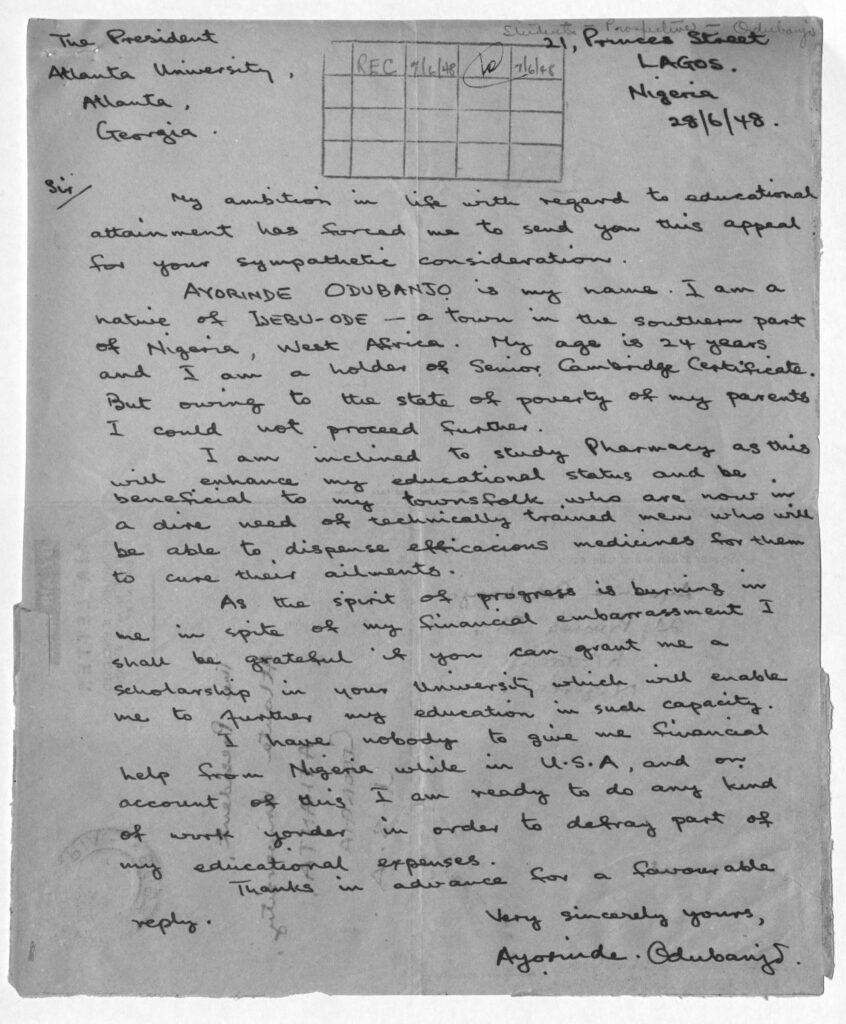 Students - Prospective - Odubanjo
The President
Atlanta University,
Atlanta,
Georgia.
REC 7/6/48 7/6/48
21, Princes Street
LAGOS.
Nigeria
28/6/48.
Sir
My ambition in life with regard to educational
attainment has forced me to send you this appeal
for your sympathetic consideration.
AYORINDE ODUBANJO is my name. I am a
native of IJEBU-ODE - a town in the southern part
of Nigeria, West Africa. My age is 24 years
and I am a holder of Senior Cambridge Certificate.
But owing to the state of poverty of my parents
I could not proceed further.
I am inclined to study Pharmacy as this
will enhance my educational status and be
beneficial to my townsfolk who are now in
a dire need of technically trained men who will
be able to dispense efficacious medicines for them
to cure their ailments.
As the spirit of progress is burning in
me in spite of my financial embarrassment I
shall be grateful if you can grant me a
scholarship in your University which will enable
me to further my education in such capacity.
I have nobody to give me financial
help from Nigeria while in U.S.A, and on
account of this I am ready to do any kind
of work yonder in order to defray part of
my educational expenses.
Thanks in advance for a favourable
reply.
Very sincerely yours,
Ayorinde. Odubanjo.